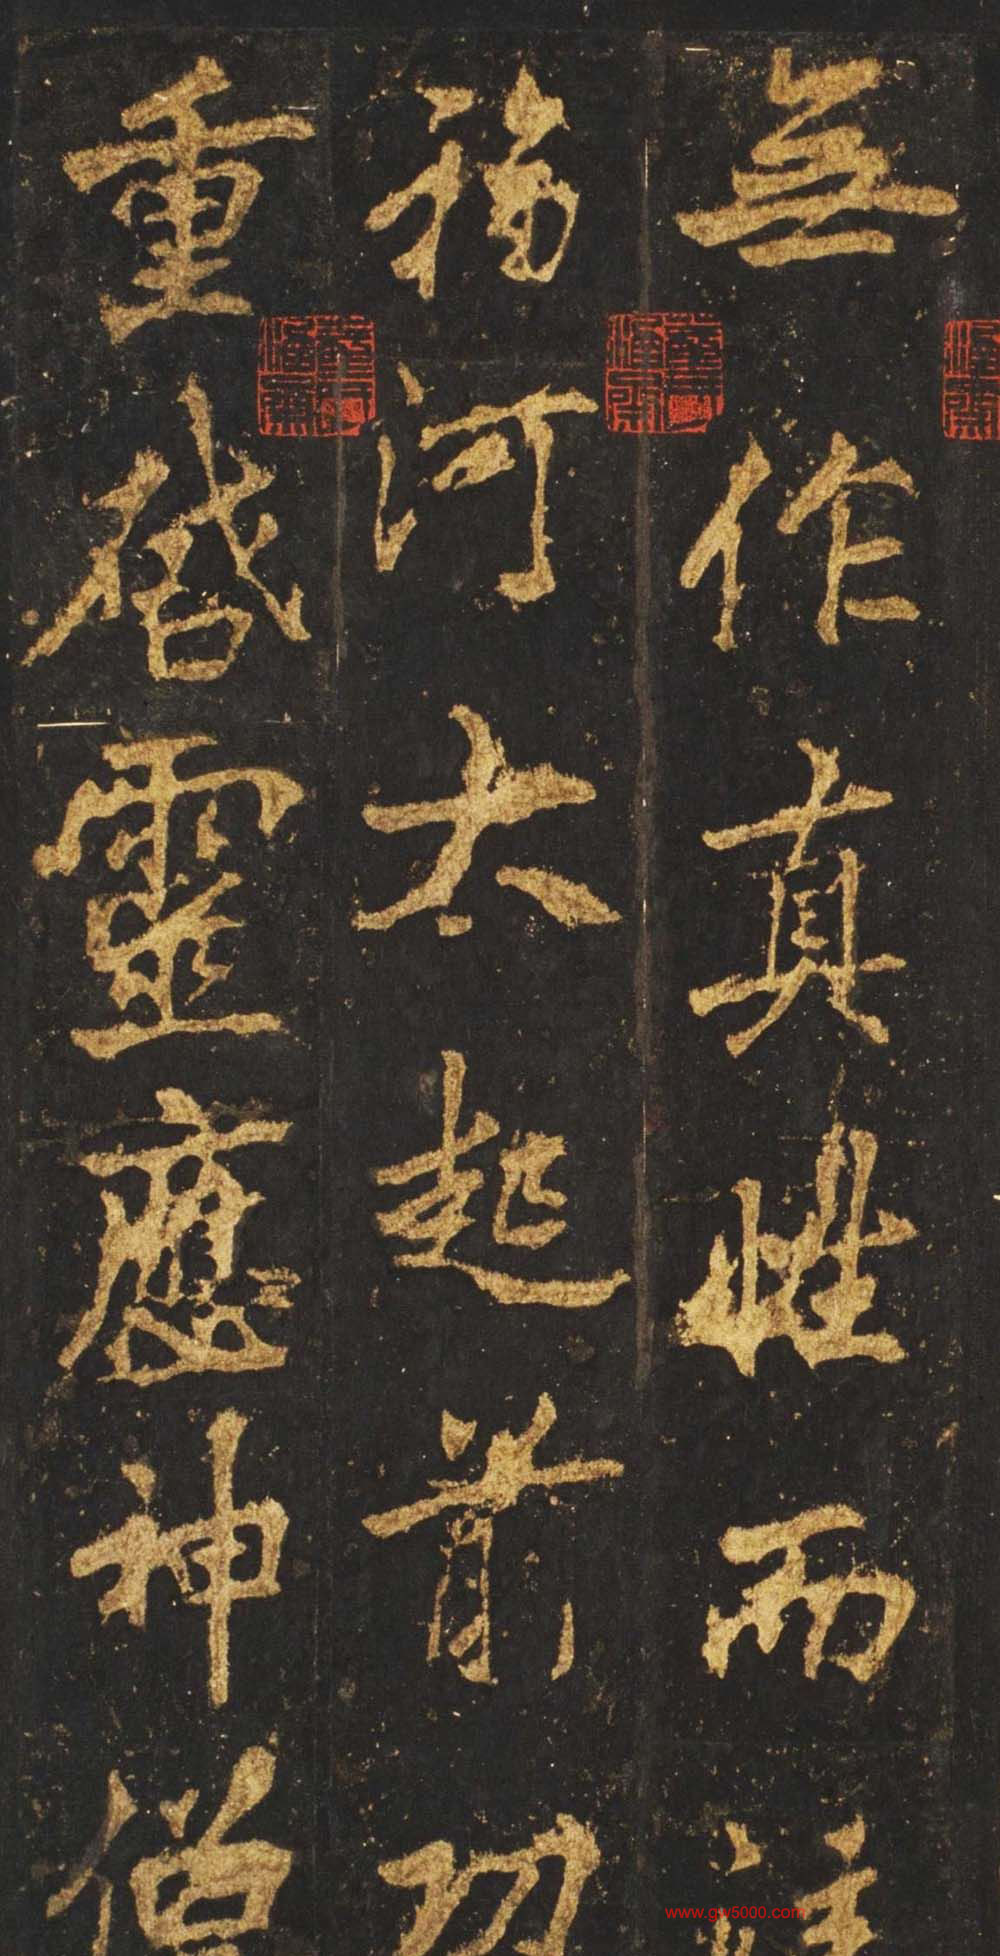 無作真性而
福河太起前功
重啓靈應神僧
www.gw5000.com